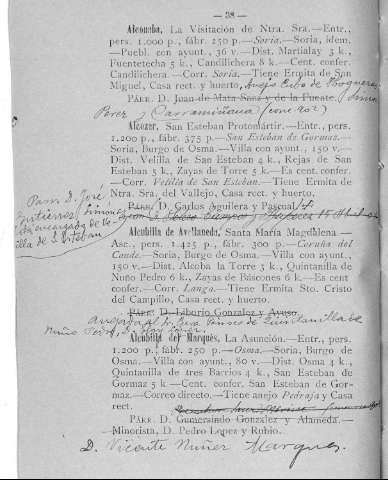 — 38 —
Alconaba, La Visitación de Ntra. Sra.—Entr.,
pers. 1.000 p., fábr. 250 p.—Soria.—Soria, idem.
—Puebl. con ayunt., 36 v.—Dist. Martialay 3 k.,
Fuentetecha 5 k., Candilichera 8 k.—Cent. confer.
Candilichera.—Corr. Soria.—Tiene Ermita de San
Miguel, Casa rect. y huerto, Anejo Cubo de Hogueras
PÁRR. D. Juan de Mata Sanz y de la Fuente.
Perez y Carramiñana
Alcozar, San Esteban Protomártir.—Entr., pers.
1.200 p., fábr. 375 p.—San Esteban de Gormaz.—
Soria, Burgo de Osma.—Villa con ayunt., 150 v.—
Dist. Velilla de San Esteban 4 k., Rejas de San
Esteban 5 k., Zayas de Torre 5 k.—Es cent. confer.
—Corr. Velilla de San Esteban.—Tiene Ermita de
Ntra. Sra. del Vallejo, Casa rect. y huerto.
PÁRR. D. Carlos Aguilera y Pascual.
Parr. D. José
Gutierrez Simón
encargado de Ve
illa de S. Esteban
Alcubilla de Avellaneda, Santa María Magdalena—
Asc., pers. 1.425 p., fábr. 300 p.—Coruña del
Conde.—Soria, Burgo de Osma.—Villa con ayunt.,
150 v.—Dist. Alcoba la Torre 3 k., Quintanilla de
Nuño Pedro 6 k., Zayas de Báscones 6 k.—Es cent
confer.—Corr. Langa.—Tiene Ermita Sto. Cristo
del Campillo, Casa rect. y huerto.
PÁRR. D. Liborio Gonzalez y Ayuso.
Quintanilla de
Nuño Pedro
Alcubilla del Marqués, La Asunción.—Entr., pers.
1.200 p., fábr. 250 p.—Osma.—Soria, Burgo de
Osma.—Villa con ayunt., 80 v.—Dist. Osma 4 k.,
Quintanilla de tres Barrios 4 k., San Esteban de
Gormaz 5 k—Cent. confer. San Esteban de Gor-
maz.—Correo directo.—Tiene anejo Pedraja y Casa
rect.
PÁRR. D. Gumersindo Gonzalez y Alameda.—
—Minorista, D. Pedro Lopez y Rubio.
D. Vicente Nuñez Marques.